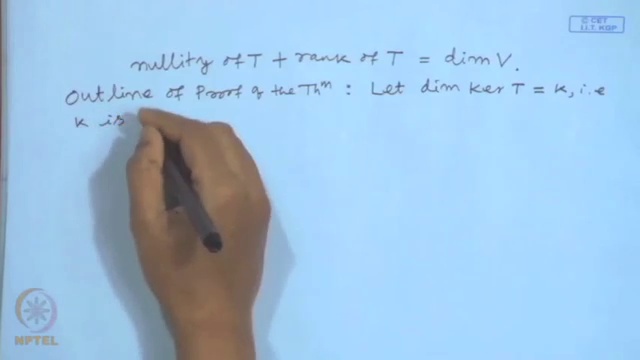 © CET
I.I.T. KGP
nullity of T + rank of T = dim V.
Outline of Proof of the Thm : Let dim ker T = k, i.e
k is
NPTEL